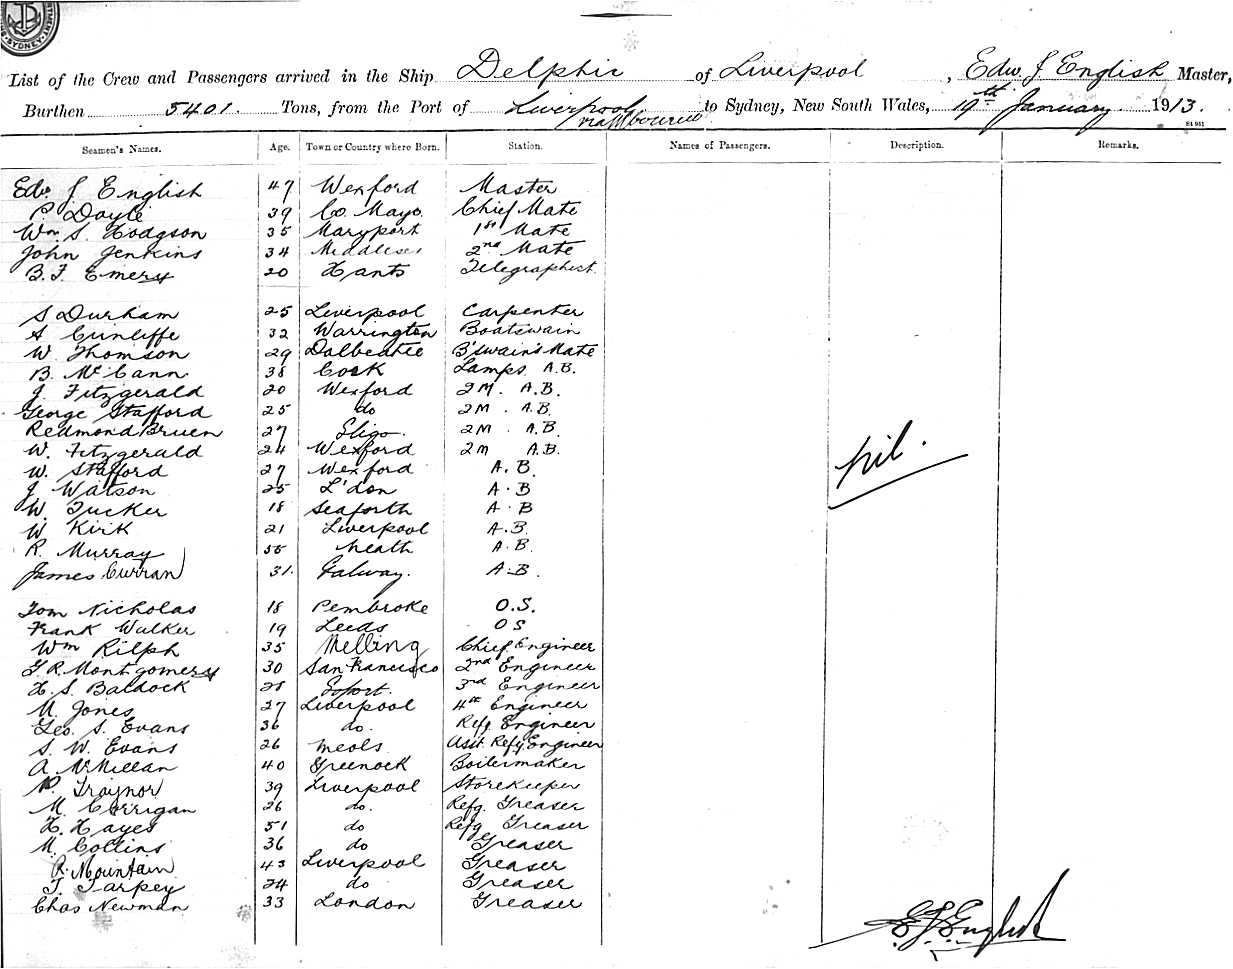 SYDNEY
List of the Crew and Passengers arrived in the Ship Delphic of Liverpool, Edw. J English Master,
Burthen 5401. Tons, from the Port of Liverpool via Melbourne to Sydney, New South Wales, 19th January 1913.
Seamen's Names. Age. Town or Country where Born. Station. Names of Passengers. Description. Remarks.
Edw. J. English 47 Wexford Master
P Doyle 39 Co. Mayo. Chief Mate
Wm S. Hodgson 35 Maryport 1st Mate
John Jenkins 34 Middlesex 2nd Mate
B. F. Emery 20 Hants Telegraphist
S Durham 25 Liverpool Carpenter
A Cunliffe 32 Warrington Boatswain
W Thomson 29 Dalbeatie B'swain's Mate
B. McCann 38 Cork Lamps. A.B.
J. Fitzgerald 20 Wexford 2M. A.B.
George Stafford 25 do 2M. A.B.
Redmond Bruen 27 Sligo. 2M. A.B.
W. Fitzgerald 24 Wexford 2M A.B.
W. Stafford 27 Wexford A.B.
J Watson 25 L'don A.B
W. Tucker 18 Seaforth A.B
W Kirk 21 Liverpool A.B.
R. Murray 55 Meath A.B.
James Curran 31. Galway. A.B.
nil.
Tom Nicholas 18 Pembroke O.S.
Frank Walker 19 Leeds O S
Wm Rilph 35 Melling Chief Engineer
G. R. Montgomery 30 San Francisco 2nd Engineer
H. S. Baldock 28 3rd Engineer
M. Jones 27 Liverpool 4th Engineer
Geo. S. Evans 36 do. Refg Engineer
S. W. Evans 26 Meols Asst Refg Engineer
A McMillan 40 Greenock Boilermaker
P. Traynor 39 Liverpool Storekeeper
M. Corrigan 26 do. Refg. Greaser
H. Hayes 51 do Refg Greaser
M. Collins 36 do Greaser
R. Mountain 43 Liverpool Greaser
T. Tarpey 24 do Greaser
Chas Newman 33 London Greaser
E J English